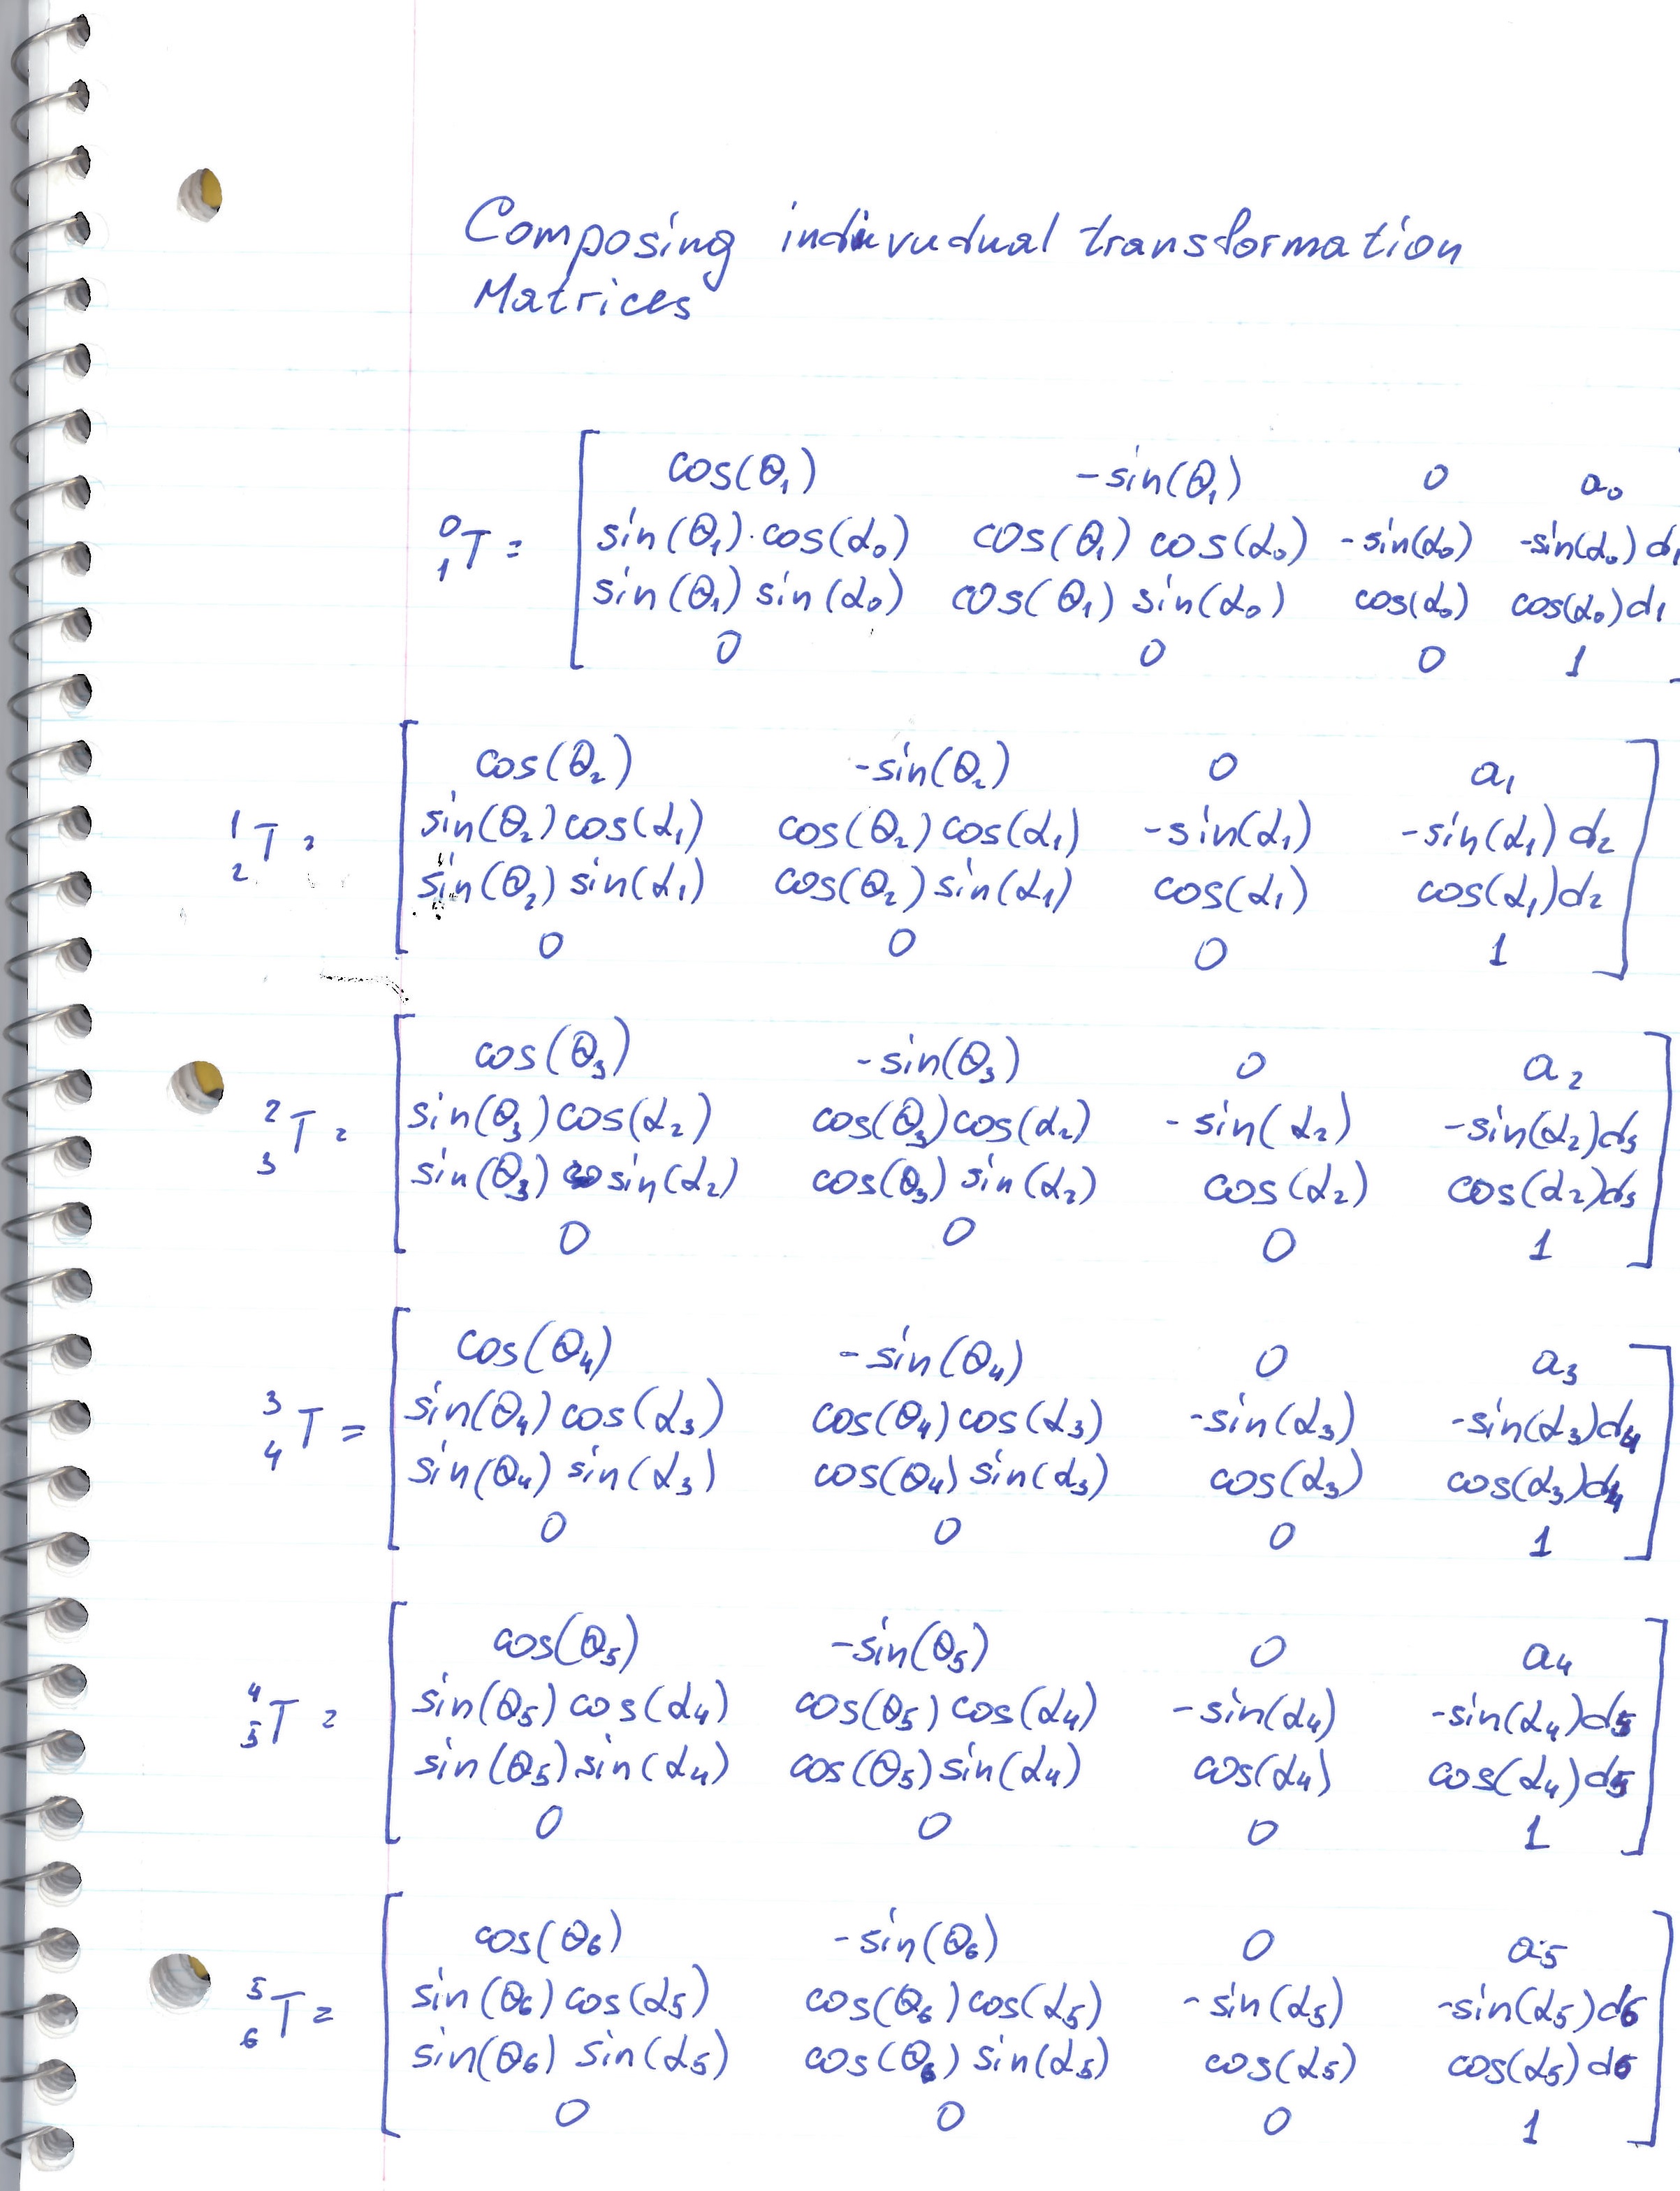 Composing indivudual transformation
Matrices
cos(θ₁) -sin(θ₁) 0 a₀
sin(θ₁)·cos(α₀) cos(θ₁) cos(α₀) -sin(α₀) -sin(α₀) d₁
⁰₁T =
sin(θ₁) sin(α₀) cos(θ₁) sin(α₀) cos(α₀) cos(α₀)d₁
0 0 0 1
cos(θ₂) -sin(θ₂) 0 a₁
sin(θ₂)cos(α₁) cos(θ₂)cos(α₁) -sin(α₁) -sin(α₁)d₂
¹₂T =
sin(θ₂)sin(α₁) cos(θ₂)sin(α₁) cos(α₁) cos(α₁)d₂
0 0 0 1
cos(θ₃) -sin(θ₃) 0 a₂
sin(θ₃)cos(α₂) cos(θ₃)cos(α₂) -sin(α₂) -sin(α₂)d₃
²₃T =
sin(θ₃) sin(α₂) cos(θ₃) sin(α₂) cos(α₂) cos(α₂)d₃
0 0 0 1
cos(θ₄) -sin(θ₄) 0 a₃
sin(θ₄)cos(α₃) cos(θ₄)cos(α₃) -sin(α₃) -sin(α₃)d₄
³₄T =
sin(θ₄) sin(α₃) cos(θ₄) sin(α₃) cos(α₃) cos(α₃)d₄
0 0 0 1
cos(θ₅) -sin(θ₅) 0 a₄
sin(θ₅) cos(α₄) cos(θ₅)cos(α₄) -sin(α₄) -sin(α₄)d₅
⁴₅T =
sin(θ₅)sin(α₄) cos(θ₅)sin(α₄) cos(α₄) cos(α₄)d₅
0 0 0 1
cos(θ₆) -sin(θ₆) 0 a₅
sin(θ₆) cos(α₅) cos(θ₆)cos(α₅) -sin(α₅) -sin(α₅)d₆
⁵₆T =
sin(θ₆) sin(α₅) cos(θ₆) sin(α₅) cos(α₅) cos(α₅)d₆
0 0 0 1